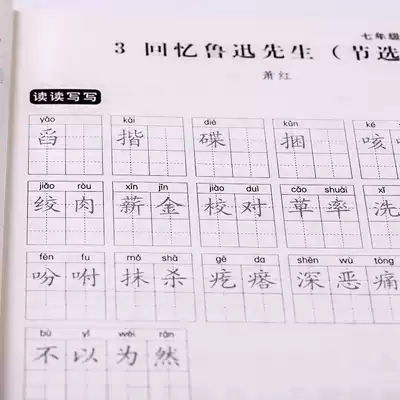 七年级
3 回忆鲁迅先生（节选
萧红
读读写写
yǎo kāi dié kǔn ké
舀 揩 碟 捆 咳
jiǎo ròu xīn jīn jiào duì cǎo shuài xǐ
绞肉 薪金 校对 草率 洗
fēn fu mǒ shā gē da shēn wù tòng
吩咐 抹杀 疙瘩 深恶痛
bù yǐ wéi rán
不以为然